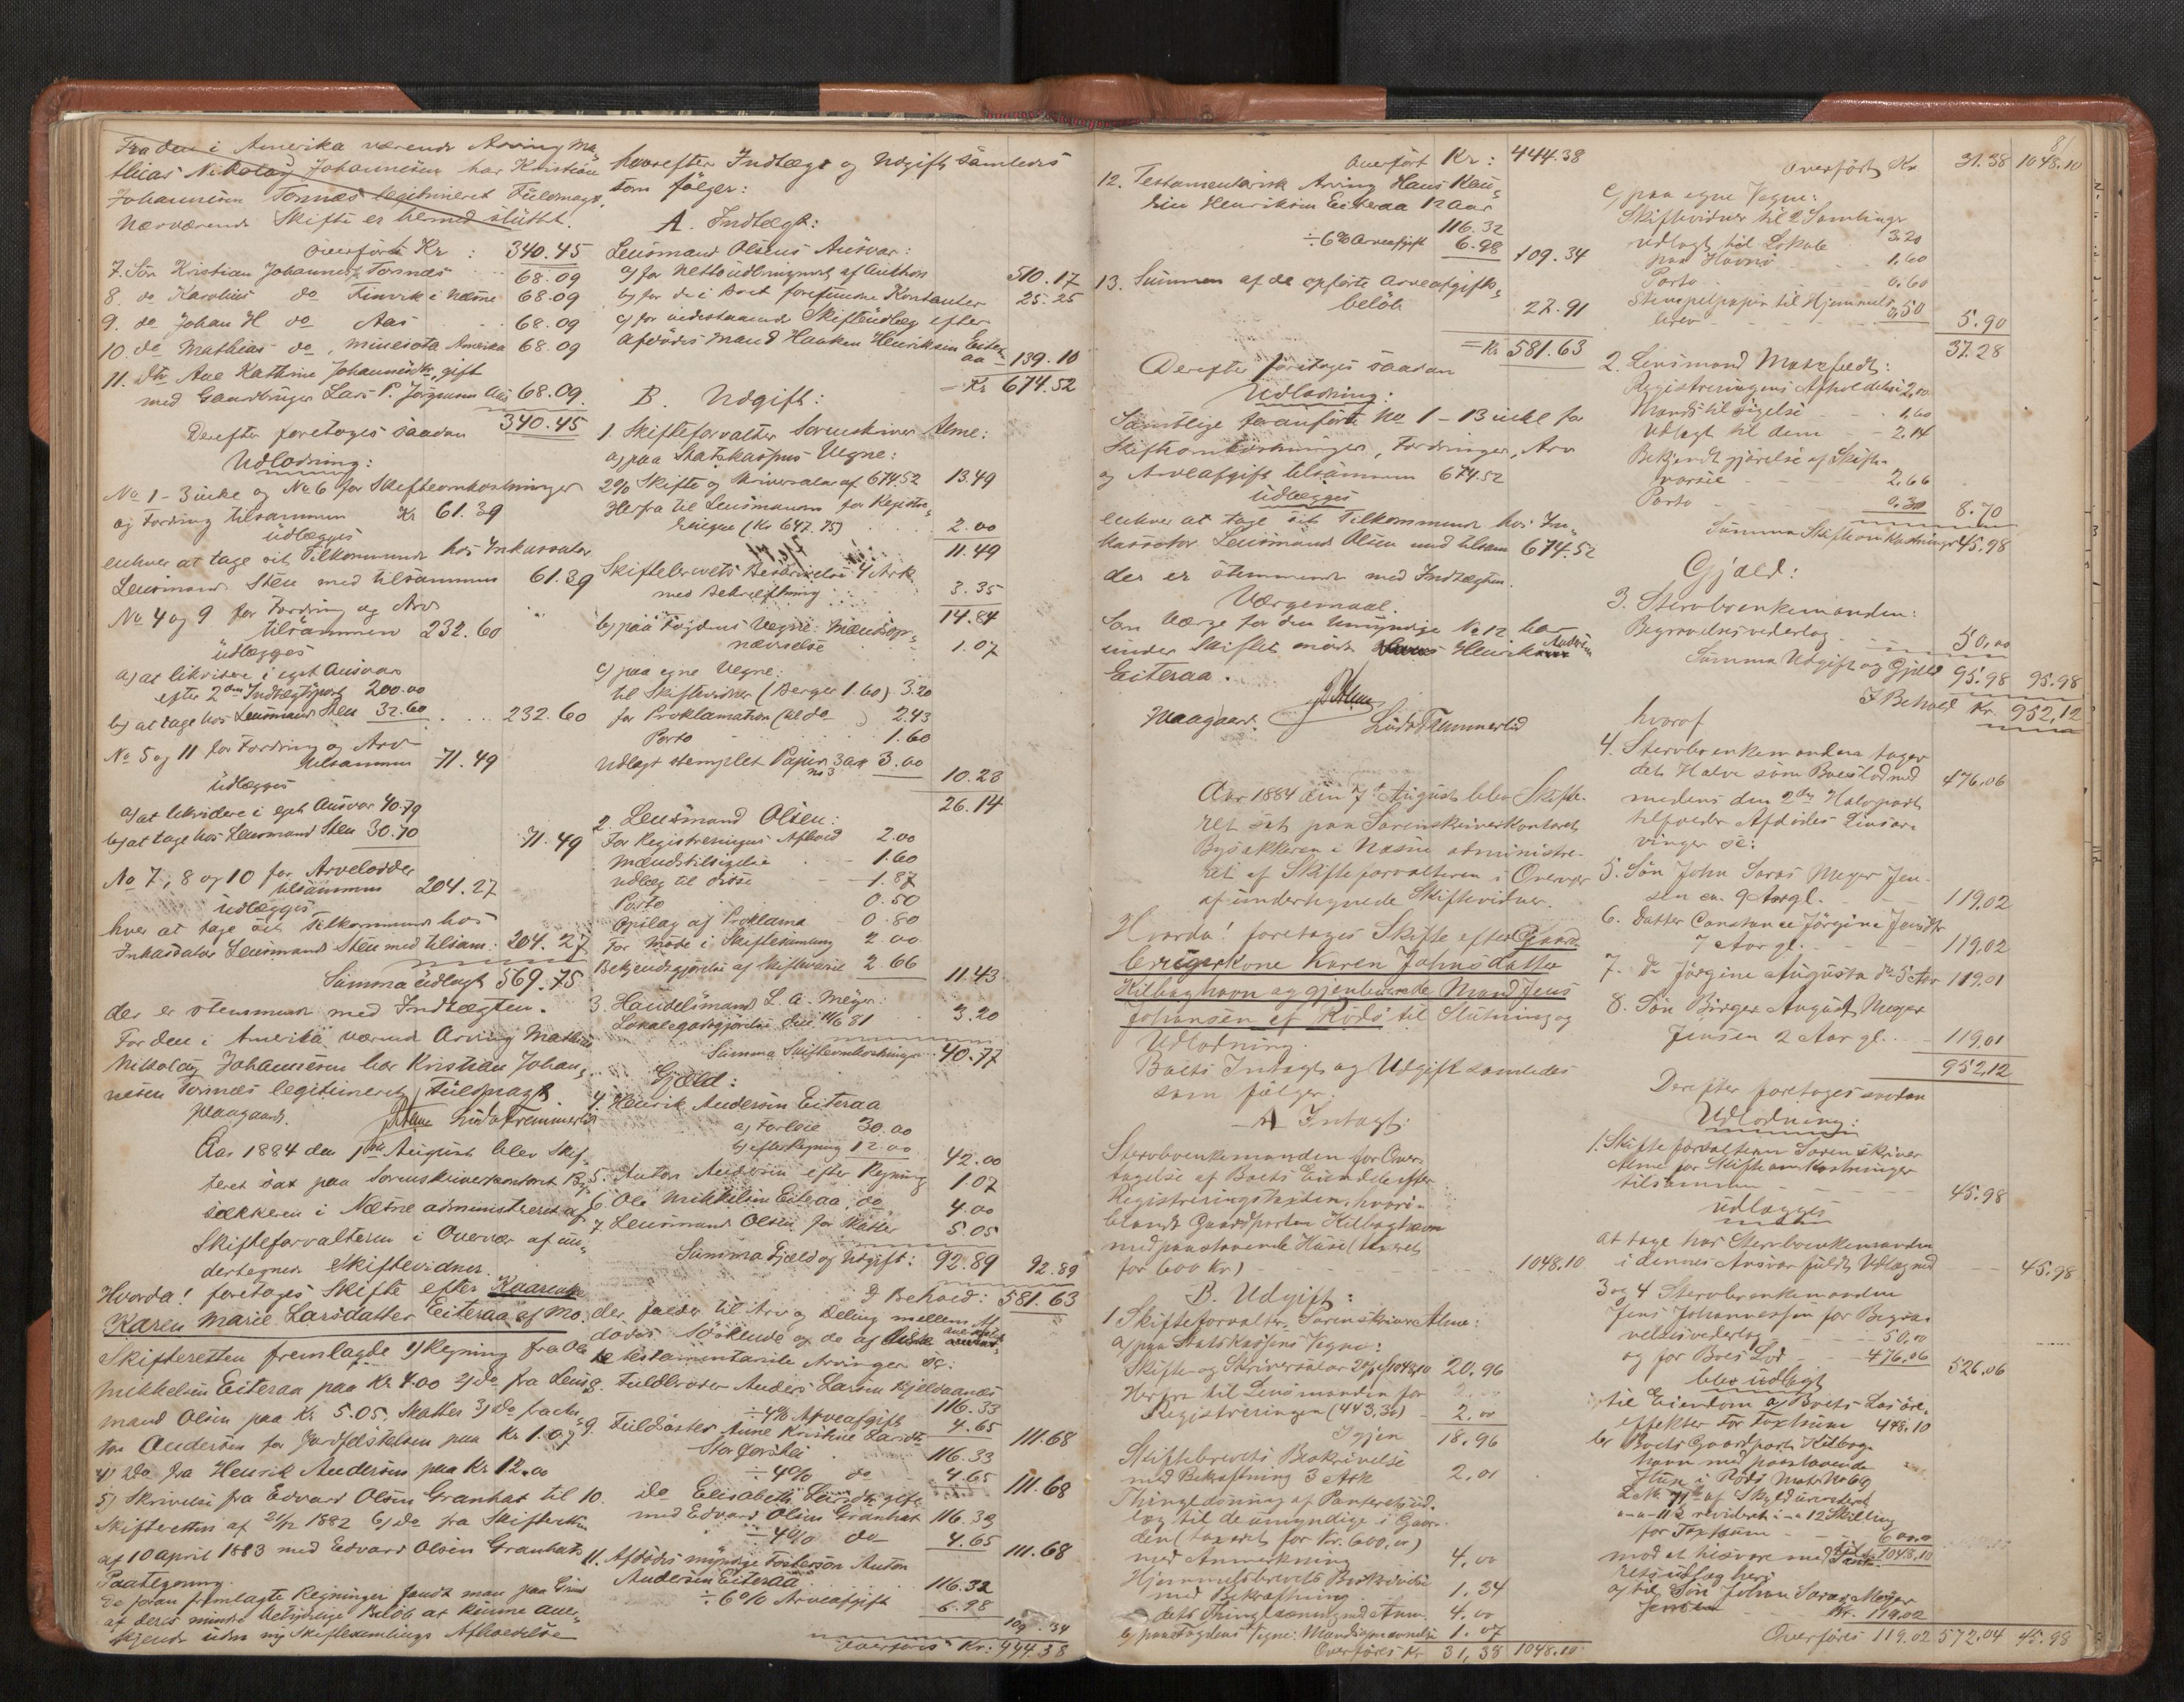 Fra den i Amerika værende Arving Ma-
thias Nikolay Johannesen har Kristian
Johannesen Tornæs legitimeret Fuldmagt.
Nærværende Skifte er hermed sluttet.
Overført Kr : 340.45
7. Søn Kristian Johannesen Tornæs 68.09
8. do Karolius do Finvik i Næsne 68.09
9. do Johan H do Aas 68.09
10. do Mathias do, Minesota Amerika 68.09
11. Dtr Ane Kathrine Johannesdtr, gift
med Gaardbruger Lars P. Jörgensen Aas 68.09
340.45
Derefter foretoges saadan
Udlodning:
No 1-3 incl og No 6 for Skifteomkostninger
og Fordring tilsammen Kr 61.39
udlægges
enhver at tage sit Tilkommende hos Inkassator
Lensmand Steen med tilsammen 61.39
No 4 og 9 for Fordring og Arv
tilsammen 232.60
udlægges
a) at likvidere i eget Ansvar
efter 2den Indtægtspost 200.00
b) at tage hos Lensmand Steen 32.60 232.60
No 5 og 11 for Fordring og Arv
tilsammen 71.49
udlægges
a) at likvidere i eget Ansvar 40.79
b) at tage hos Lensmand Steen 30.70 71.49
No 7, 8 og 10 for Arvelodder
tilsammen 204.27
udlægges
hver at tage sit Tilkommende hos
Inkassator Lensmand Steen med tilsam: 204.27
Summa udlagt 569.75
der er stemmende med Indtægten.
For den i Amerika værende Arving Mathias
Nikolay Johannesen har Kristian Johan-
nesen Tornæs legitimeret Fuldmagt.
Maagaard.
Aar 1884 den 7de August blev Skif-
teret sat paa Sorenskriverkontoret By-
sækkeren i Næsne administreret af
Skifteforvalteren i Overvær af un-
dertegnede Skiftevidner.
Hvorda! foretoges Skifte efter
Karen Marie Larsdatter Eiteraa af Mo.
Skifteretten fremlagde 1) Regning fra Ole
Mikkelsen Eiteraa paa Kr 4.00 2) do fra Lens-
mand Olsen paa Kr 5.05, Skatter 3) do fra An-
ton Andersen for Jordfæstelsen paa Kr 1.07
4) do fra Henrik Andersen paa Kr 12.00
5) Skrivelse fra Edvard Olsen Granhat til
Skifteretten af 21/12 1882 6) do fra Skifteretten
af 10 April 1883 med Edvard Olsen Granhats
Paategning.
De foran fremlagte Regninger fandt man paa Grund
af deres mindre betydelige Beløb at kunne aner-
kjende uden ny Skiftesamlings Afholdelse
hvorefter Indtægt og Udgift samledes
som følger:
A. Indtægt:
Lensmand Olsens Ansvar:
a) for Nettoudbringende af Auktion 510.17
b) for de i Boet forefundne Kontanter 25.25
c) for vedstaaende Skifteudlæg efter
Afdødes Mand Haaken Henriksen Eiter-
aa 139.10
Kr 674.52
B. Udgift:
1. Skifteforvalter Sorenskriver Alme:
a) paa Statskassens Vegne:
2% Skifte og Skriversalær af 674.52 13.49
Herfra til Lensmanden for Registre-
ringen (Kr 647.75) 2.00
11.49
Skiftebrevets Beskrivelse 4 Ark
med Bekræftning 3.35
14.84
b) paa Fogdens Vegne: Mændsop-
nævnelse 1.07
c) paa egne Vegne:
til Skiftevidner (Berger 1.60) 3.20
for Proklamation 2.43
Porto 1.60
Udlagt stemplet Papir 3 Ark 3.00
10.23
26.14
2. Lensmand Olsen:
For Registreringens Afhold 2.00
Mændstilsigelse 1.60
Udlæg til disse 1.87
Porto 0.50
Opslag af Proklama 0.80
For Møde i Skiftesamling 2.00
Bekjendtgjørelse af Skiftevarsel 2.66 11.43
3. Handelsmand L. A. Meyer:
Lokalegodtgjørelse 3.20
Summa Skifteomkostninger 40.77
Gjæld:
4. Henrik Andersen Eiteraa
a) 30.00
b) efter Regning 12.00 42.00
5. Anton Andersen efter Regning 1.07
6. Ole Mikkelsen Eiteraa, do 4.00
7. Lensmand Olsen for Skatter 5.05
Summa Gjæld og Udgift: 92.89 92.89
I Behold: 581.63
der falder til Arv og Deling mellem Af-
dødes Södskende og de af
testamentariske Arvinger se:
8. Fuldbroder Anders Larsen Kjeldaanæs
116.33
÷ 4% Arveafgift 4.65 111.68
9. Fuldsöster Anne Kristine Larsdtr
Storforshei 116.33
÷ 4% do 4.65 111.68
10. do Elisabeth Larsdtr gift
med Edvard Olsen Granhat 116.33
÷ 4% do 4.65 111.68
11. Afdødes myndige Fostersøn Anton
Andersen Eiteraa 116.32
÷ 6% Arveafgift 6.98
109.34
Overføres Kr: 444.38
Overført Kr: 444.38
12. Testamentarisk Arving Hans
Henriksen Eiteraa 12 Aar
116.32
÷ 6% Arveafgift 6.98 109.34
13. Summen af de opførte Arveafgifts-
beløb 27.91
= Kr 581.63
Derefter foretoges saadan
Udlodning:
Samtlige foranførte No 1-13 incl for
Skifteomkostninger, Fordringer, Arv
og Arveafgift tilsammen 674.52
udlægges
enhver at tage sit Tilkommende hos In-
kassator Lensmand Olsen med tilsam 674.52
der er stemmende med Indtægten.
Værgemaal.
Som Værge for den umyndige No 12 har
under Skiftet mødt Henrik Andersen
Eiteraa.
Maagaard.
Aar 1884 den 7de August blev Skifte-
ret sat paa Sorenskriverkontoret
Bysækkeren i Næsne administre-
ret af Skifteforvalteren i Overvær
af undertegnede Skiftevidner.
Hvorda! foretoges Skifte efter Gaard-
brugerkone Karen Johnsdatter
Kilboghavn og gjenlevende Mand Jens
Johansen af Rödö til Slutning og
Udlodning.
Boets Intægt og Udgift samledes
som følger:
A Intægt:
Sterboenkemanden for Over-
tagelse af Boets Eiendele efter
Registreringslisten, hvori-
blandt Gaardparten Kilboghavn
med paastaaende Huse (taxeret
for 600 Kr) 1048.10
B. Udgift:
1 Skifteforvalter, Sorenskriver Alme:
a) paa Statskassens Vegne:
Skifte og Skriversalær 2% af 1048,10 20.96
Herfra til Lensmanden for
Registreringen (443,30) 2.00
Igjen 18.96
Skiftebrevets Beskrivelse
med Bekræftning 3 Ark 2,01
Thinglæsning af Panteretsud-
læg til de umyndige i Gaar-
den (taxeret for Kr. 600,00)
med Anmerkning 4,00
Hjemmelsbrevets Beskrivelse
med Bekræftning 1,34
dets Thinglæsning med Anm. 4.00
b) paa Fogdens Vegne: Mændsopnævnelse 1.07
Overføres Kr 31,38 1048.10
81
Overført Kr 31.38 1048.10
c) paa egne Vegne:
Skiftevidner til 2 Samlinger 3.20
Udlagt til Lokale
paa Havnö 1.60
Porto 0.60
Stempelpapir til Hjemmels-
brev 0,50 5.90
37.28
2. Lensmand Marhfeldt:
Registreringens Afholdelse 2,00
Mænds tilsigelse 1,60
Udlagt til dem 2.14
Bekjendtgjørelse af Skifte-
varsel 2.66
Porto 0.30 8.70
Summa Skifteomkostninger 45,98
Gjæld:
3. Sterboenkemanden:
Begravelsesvederlag 50,00
Summa Udgift og Gjæld 95.98 95.98
I Behold Kr. 952,12
hvoraf
4. Sterboenkemanden tager
det Halve som Boeslod med 476,06
medens den 2den Halvpart
tilfalder Afdødes Livsar-
vinger se:
5. Sön John Saras Meyer Jen-
sen ca. 9 Aar gl. 119,02
6. Datter Constance Jörgine Jensdtr
7 Aar gl. 119,02
7. do Jörgine Augusta do 5 Aar 119,01
8. Sön Birger August Meyer
Jensen 2 Aar gl. 119,01
952,12
Derefter foretoges saadan
Udlodning:
1. Skifteforvalteren Sorenskriver
Alme for Skifteomkostninger
tilsammen 45.98
udlægges
at tage hos Sterboenkemanden
i dennes Ansvar fuldt Udlæg med 45.98
3 og 4 Sterboenkemanden
Jens Johannessen for Begra-
velsesvederlag 50,00
og for Boes Lod 476,06 526.06
blev udlagt
til Eiendom a) Boets Lösöre-
effekter for Taxtsum 448.10
b) Boets Gaardpart Kilbog-
havn med paastaaende
Huse i Rödö Matr No 69
for Taxtsum 600.00
1048,10
a) til Sön Johan Saras Meyer
Jensen Kr. 119,02
Overføres 119.02 572,04 45.98